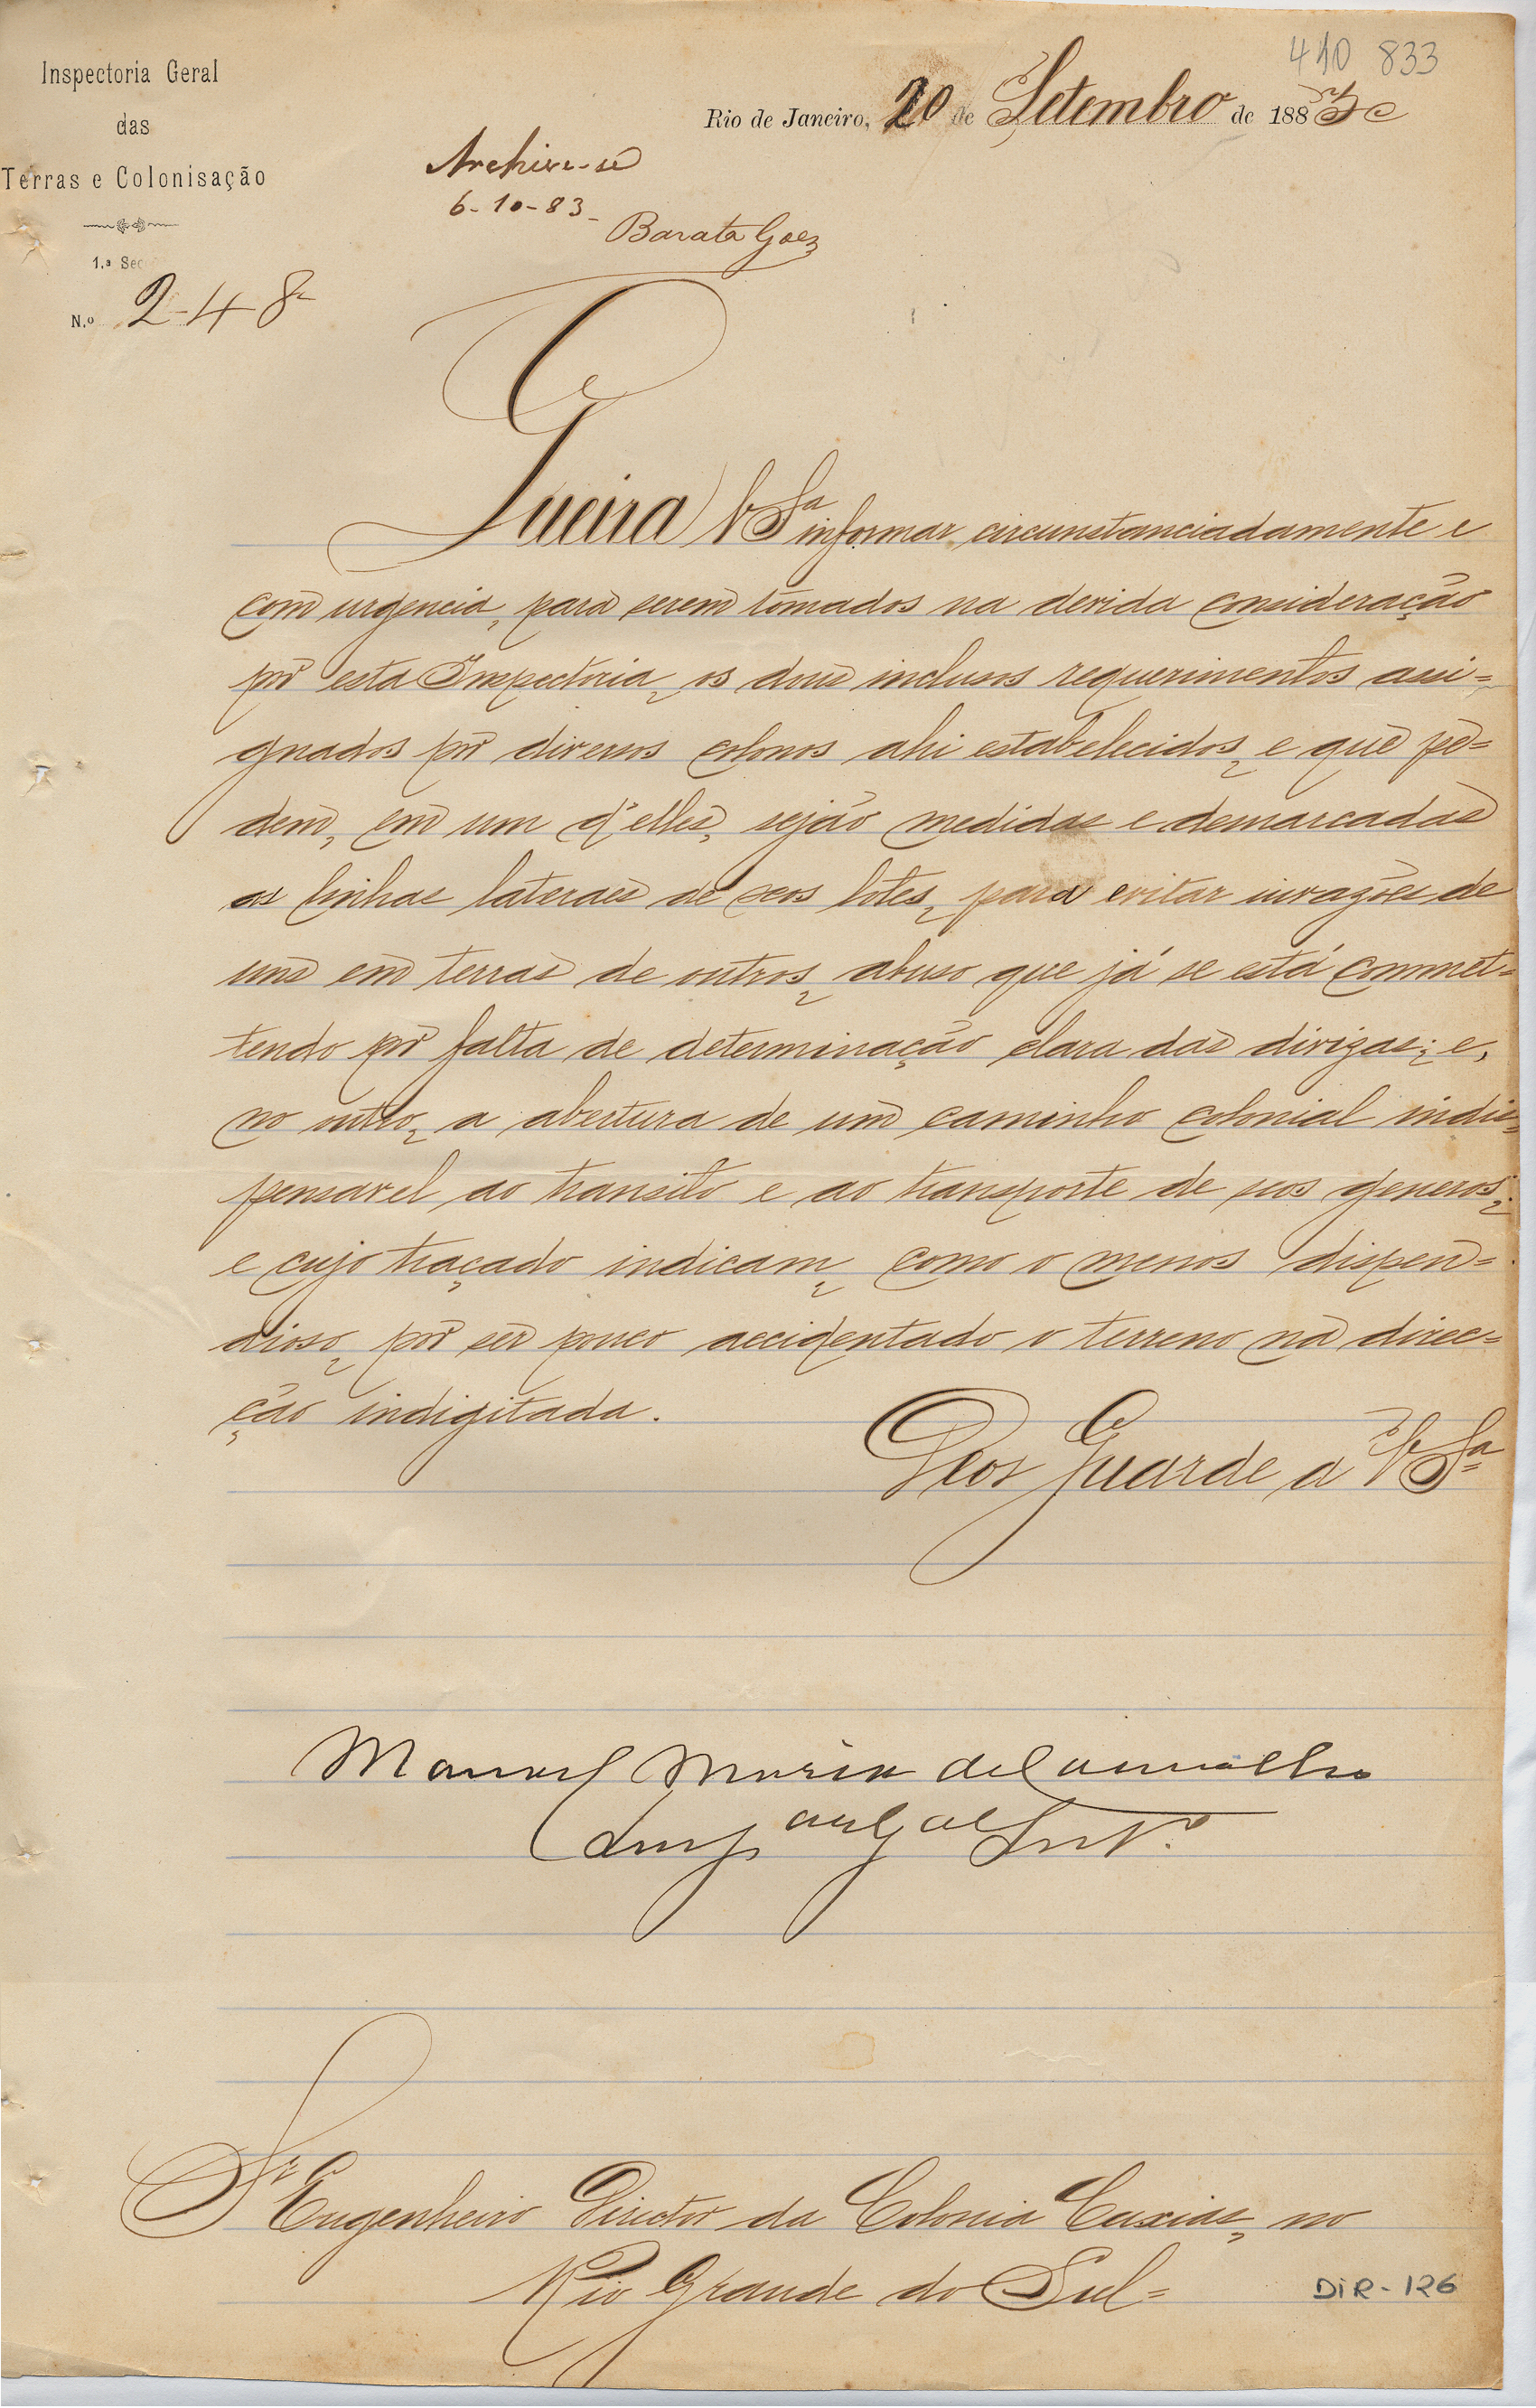 410 833
Inspectoria Geral
das
Terras e Colonisação
1.ª Sec
N.º 248
Rio de Janeiro, 20 de Setembro de 1883
Archive-se
6-10-83-
Barata Goez
Queira V Sª informar circunstanciadamente e
com urgencia, para serem tomados na devida consideração
por esta Inspectoria, os dous inclusos requerimentos assi=
gnados por diversos colonos ahi estabelecidos, e que pe=
dem, em um d'elles, sejão medidas e demarcadas
as linhas lateraes de seos lotes, para evitar invazões de
uns em terras de outros, abuso que já se está commet=
tendo por falta de determinação clara das divizas; e,
no outro, a abertura de um caminho colonial indis=
pensavel ao transito e ao transporte de seos generos,
e cujo traçado indicam, como o menos dispen=
dioso, por ser pouco accidentado o terreno na direc=
ção indigitada.
Deos Guarde a V Sª
Manoel Maria de Carvalho
Insp Geral Intº.
Sr Engenheiro Director da Colonia Caxias, no
Rio Grande do Sul=
DiR-126